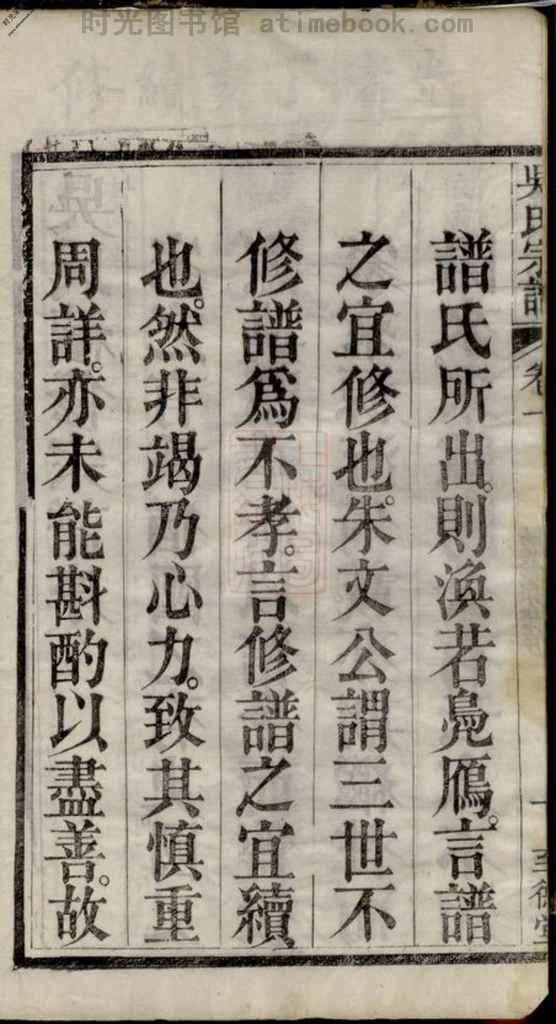 时光图书馆 atimebook.com
吳氏宗譜
卷一
一
至德堂
譜氏所出。則渙若鳧鴈。言譜
之宜修也。朱文公謂三世不
修譜爲不孝。言修譜之宜續
也。然非竭乃心力。致其慎重
周詳。亦未能斟酌以盡善。故